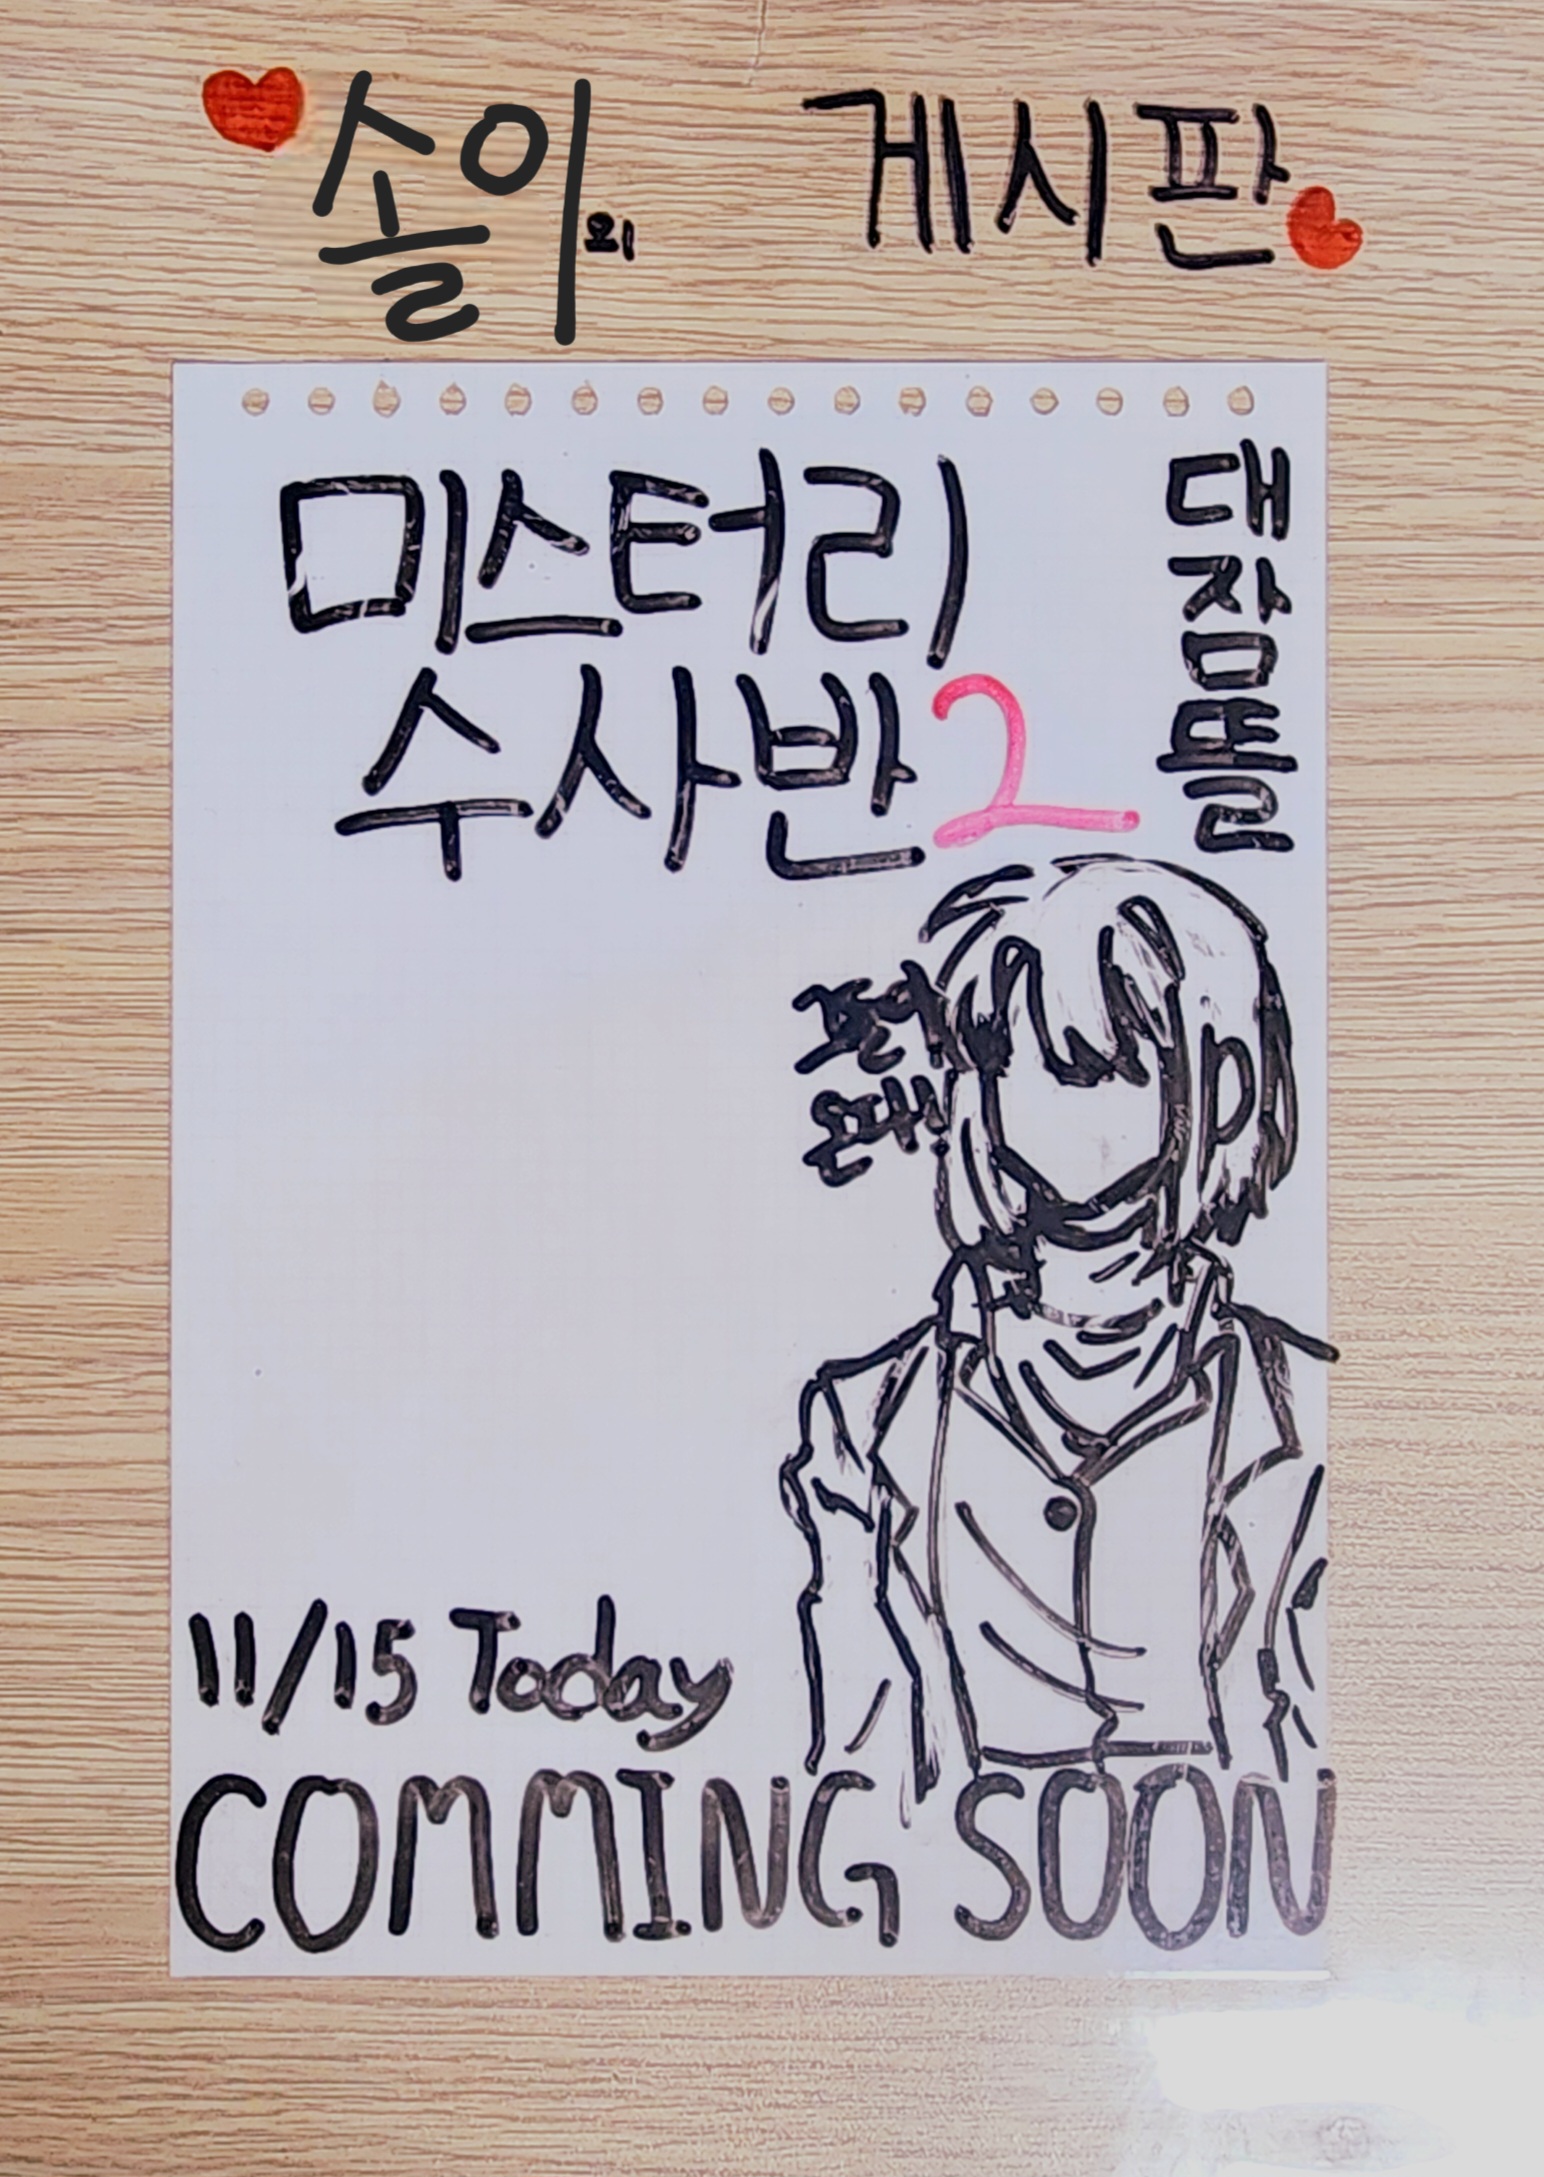 솔이의 게시판
미스터리
수사반2
대잠뜰
11/15 Today
COMMING SOON